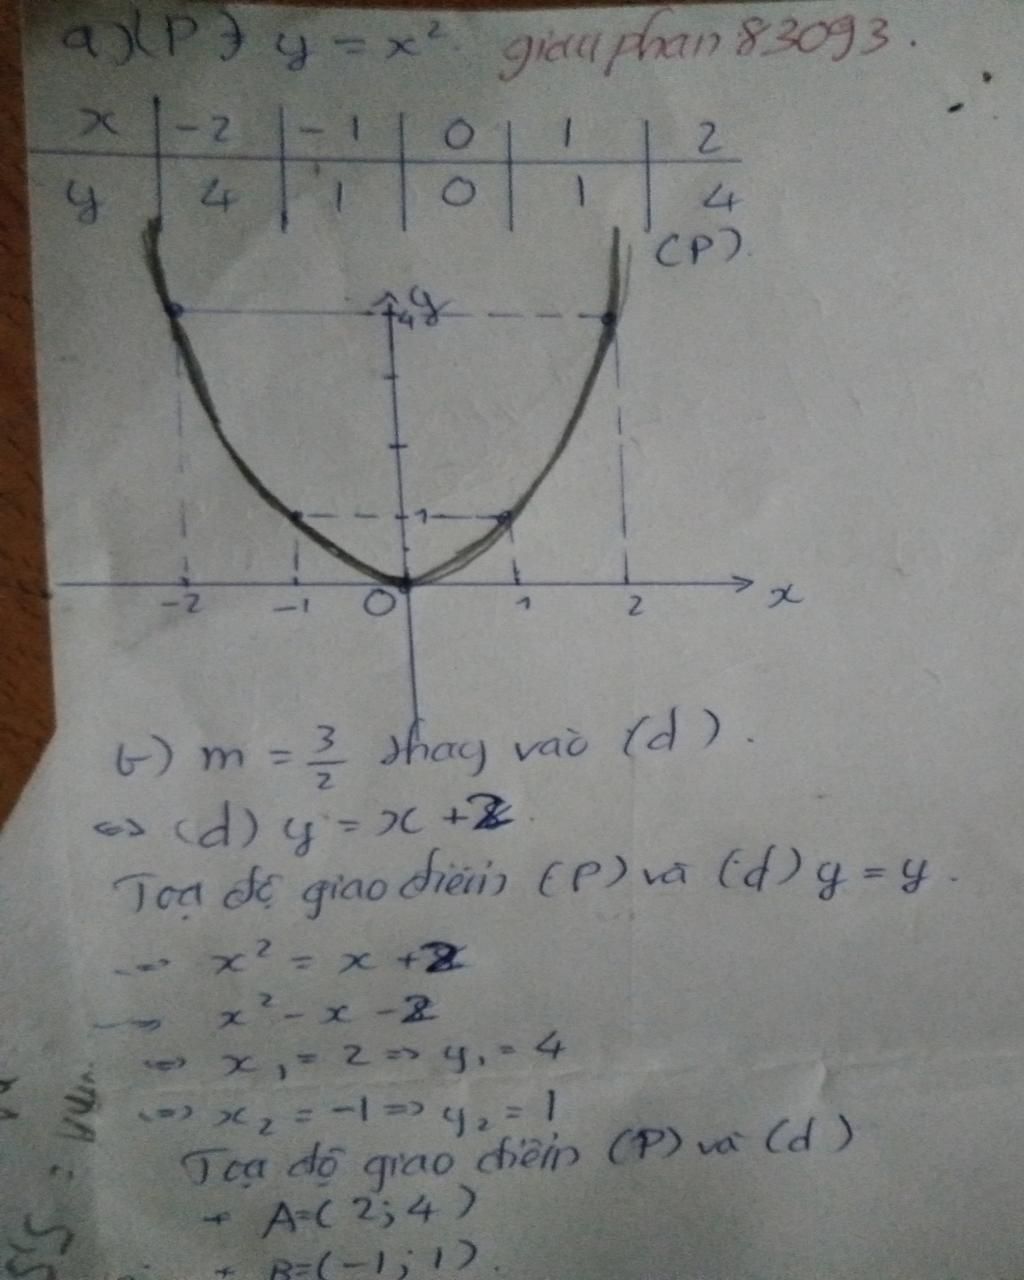 a) (P) y = x² giauphan83093.
x | -2 | -1 | 0 | 1 | 2
y | 4 | 1 | 0 | 1 | 4
(P).
y
4
1
-2 -1 O 1 2 x
b) m = 3/2 thay vào (d).
⇔ (d) y = x + 2.
Toạ độ giao điểm (P) và (d) y = y.
⇔ x² = x + 2
⇔ x² - x - 2
⇔ x₁ = 2 ⇒ y₁ = 4
⇔ x₂ = -1 ⇒ y₂ = 1
Toạ độ giao điểm (P) và (d)
+ A=(2;4)
+ B=(-1;1).